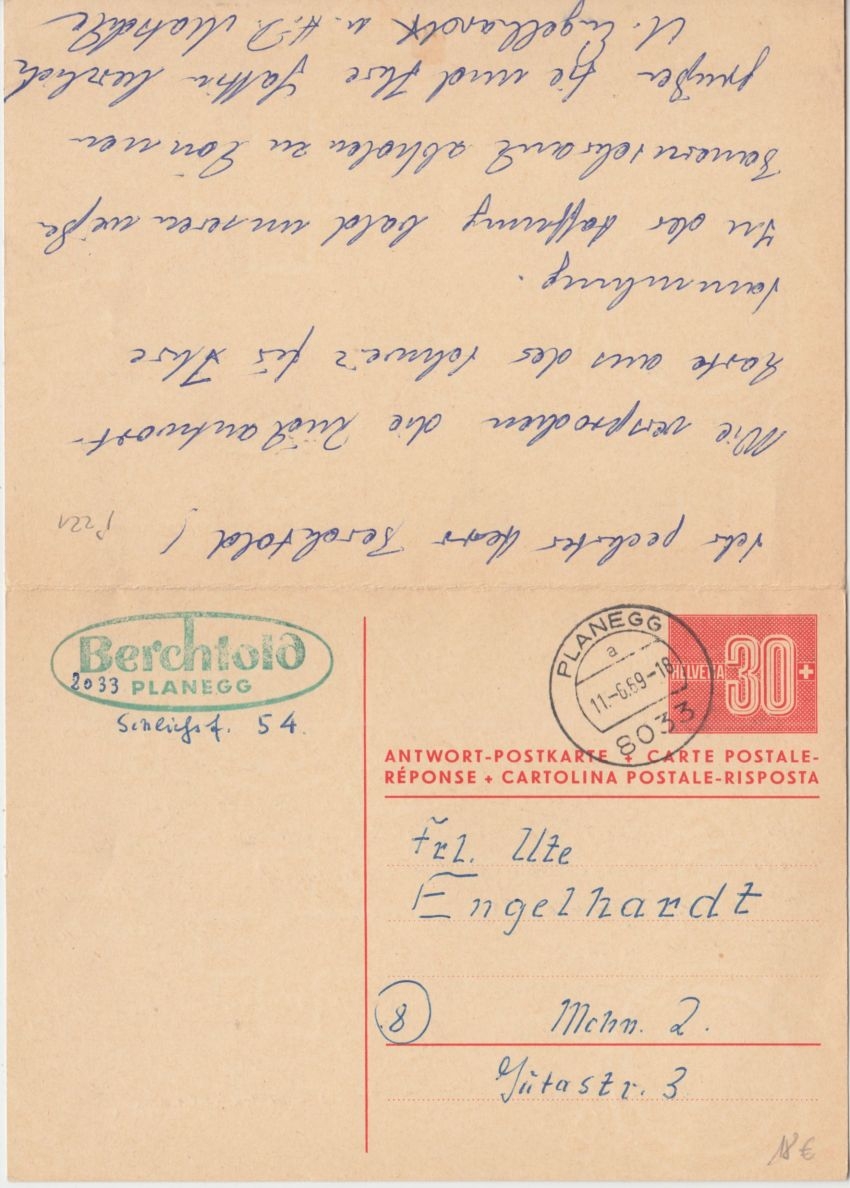 Sehr geehrter Herr Berchtold!
P 221
Wie versprochen die Rückantwort-
karte aus der Schweiz für Ihre
Sammlung.
In der Hoffnung bald unseren weißen
abholen zu können
grüßen Sie und Ihre Gattin herzlich
U. Engelhardt u. H. D.
Berchtold
8033 PLANEGG
54.
PLANEGG
a
11.-6.69-18
8033
HELVETIA 30 +
ANTWORT-POSTKARTE + CARTE POSTALE-
RÉPONSE + CARTOLINA POSTALE-RISPOSTA
Frl. Ute
Engelhardt
8 Mchn. 2.
Gütastr. 3
18 €